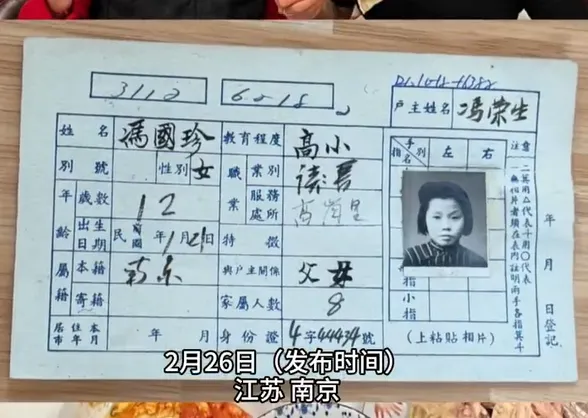 3112
6218
户主姓名 馮荣生
姓名 馮國珍 教育程度 高小
別號 性別 女 職業 業別 讀書
年齡 歲數 12 服務處所 高崗里
出生日期 民國 年1月21日 特徵
屬籍 本籍 南京 與户主關係 父女
寄籍 家屬人數 8
居住本市年月 年 月 身份證 4字44434號
指名 手別 左 右
指
小指
(上粘貼相片)
注意
一無相片者須在表內註明兩手各指箕斗
二箕用△代表斗用○代表
年 月 日登記
2月26日（发布时间）
江苏 南京